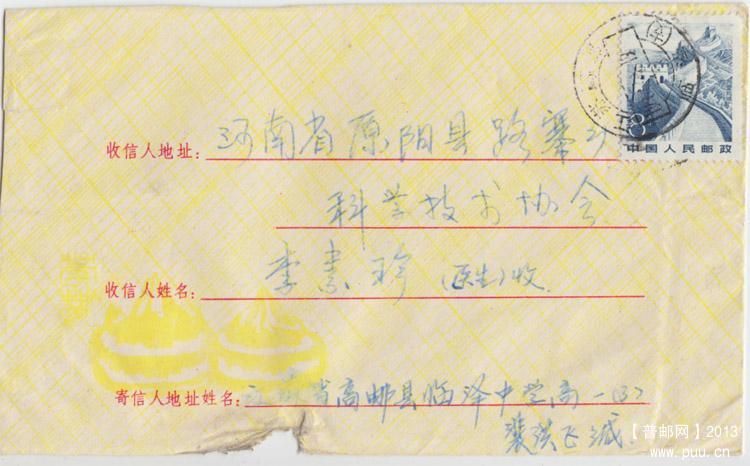 8
中国人民邮政
收信人地址: 河南省原阳县路寨乡
科学技术协会
收信人姓名: 李素珍(医生)收
寄信人地址姓名: 江苏省高邮县临泽中学高一(3)
裴洪飞缄
【普邮网】2013
www.puu.cn